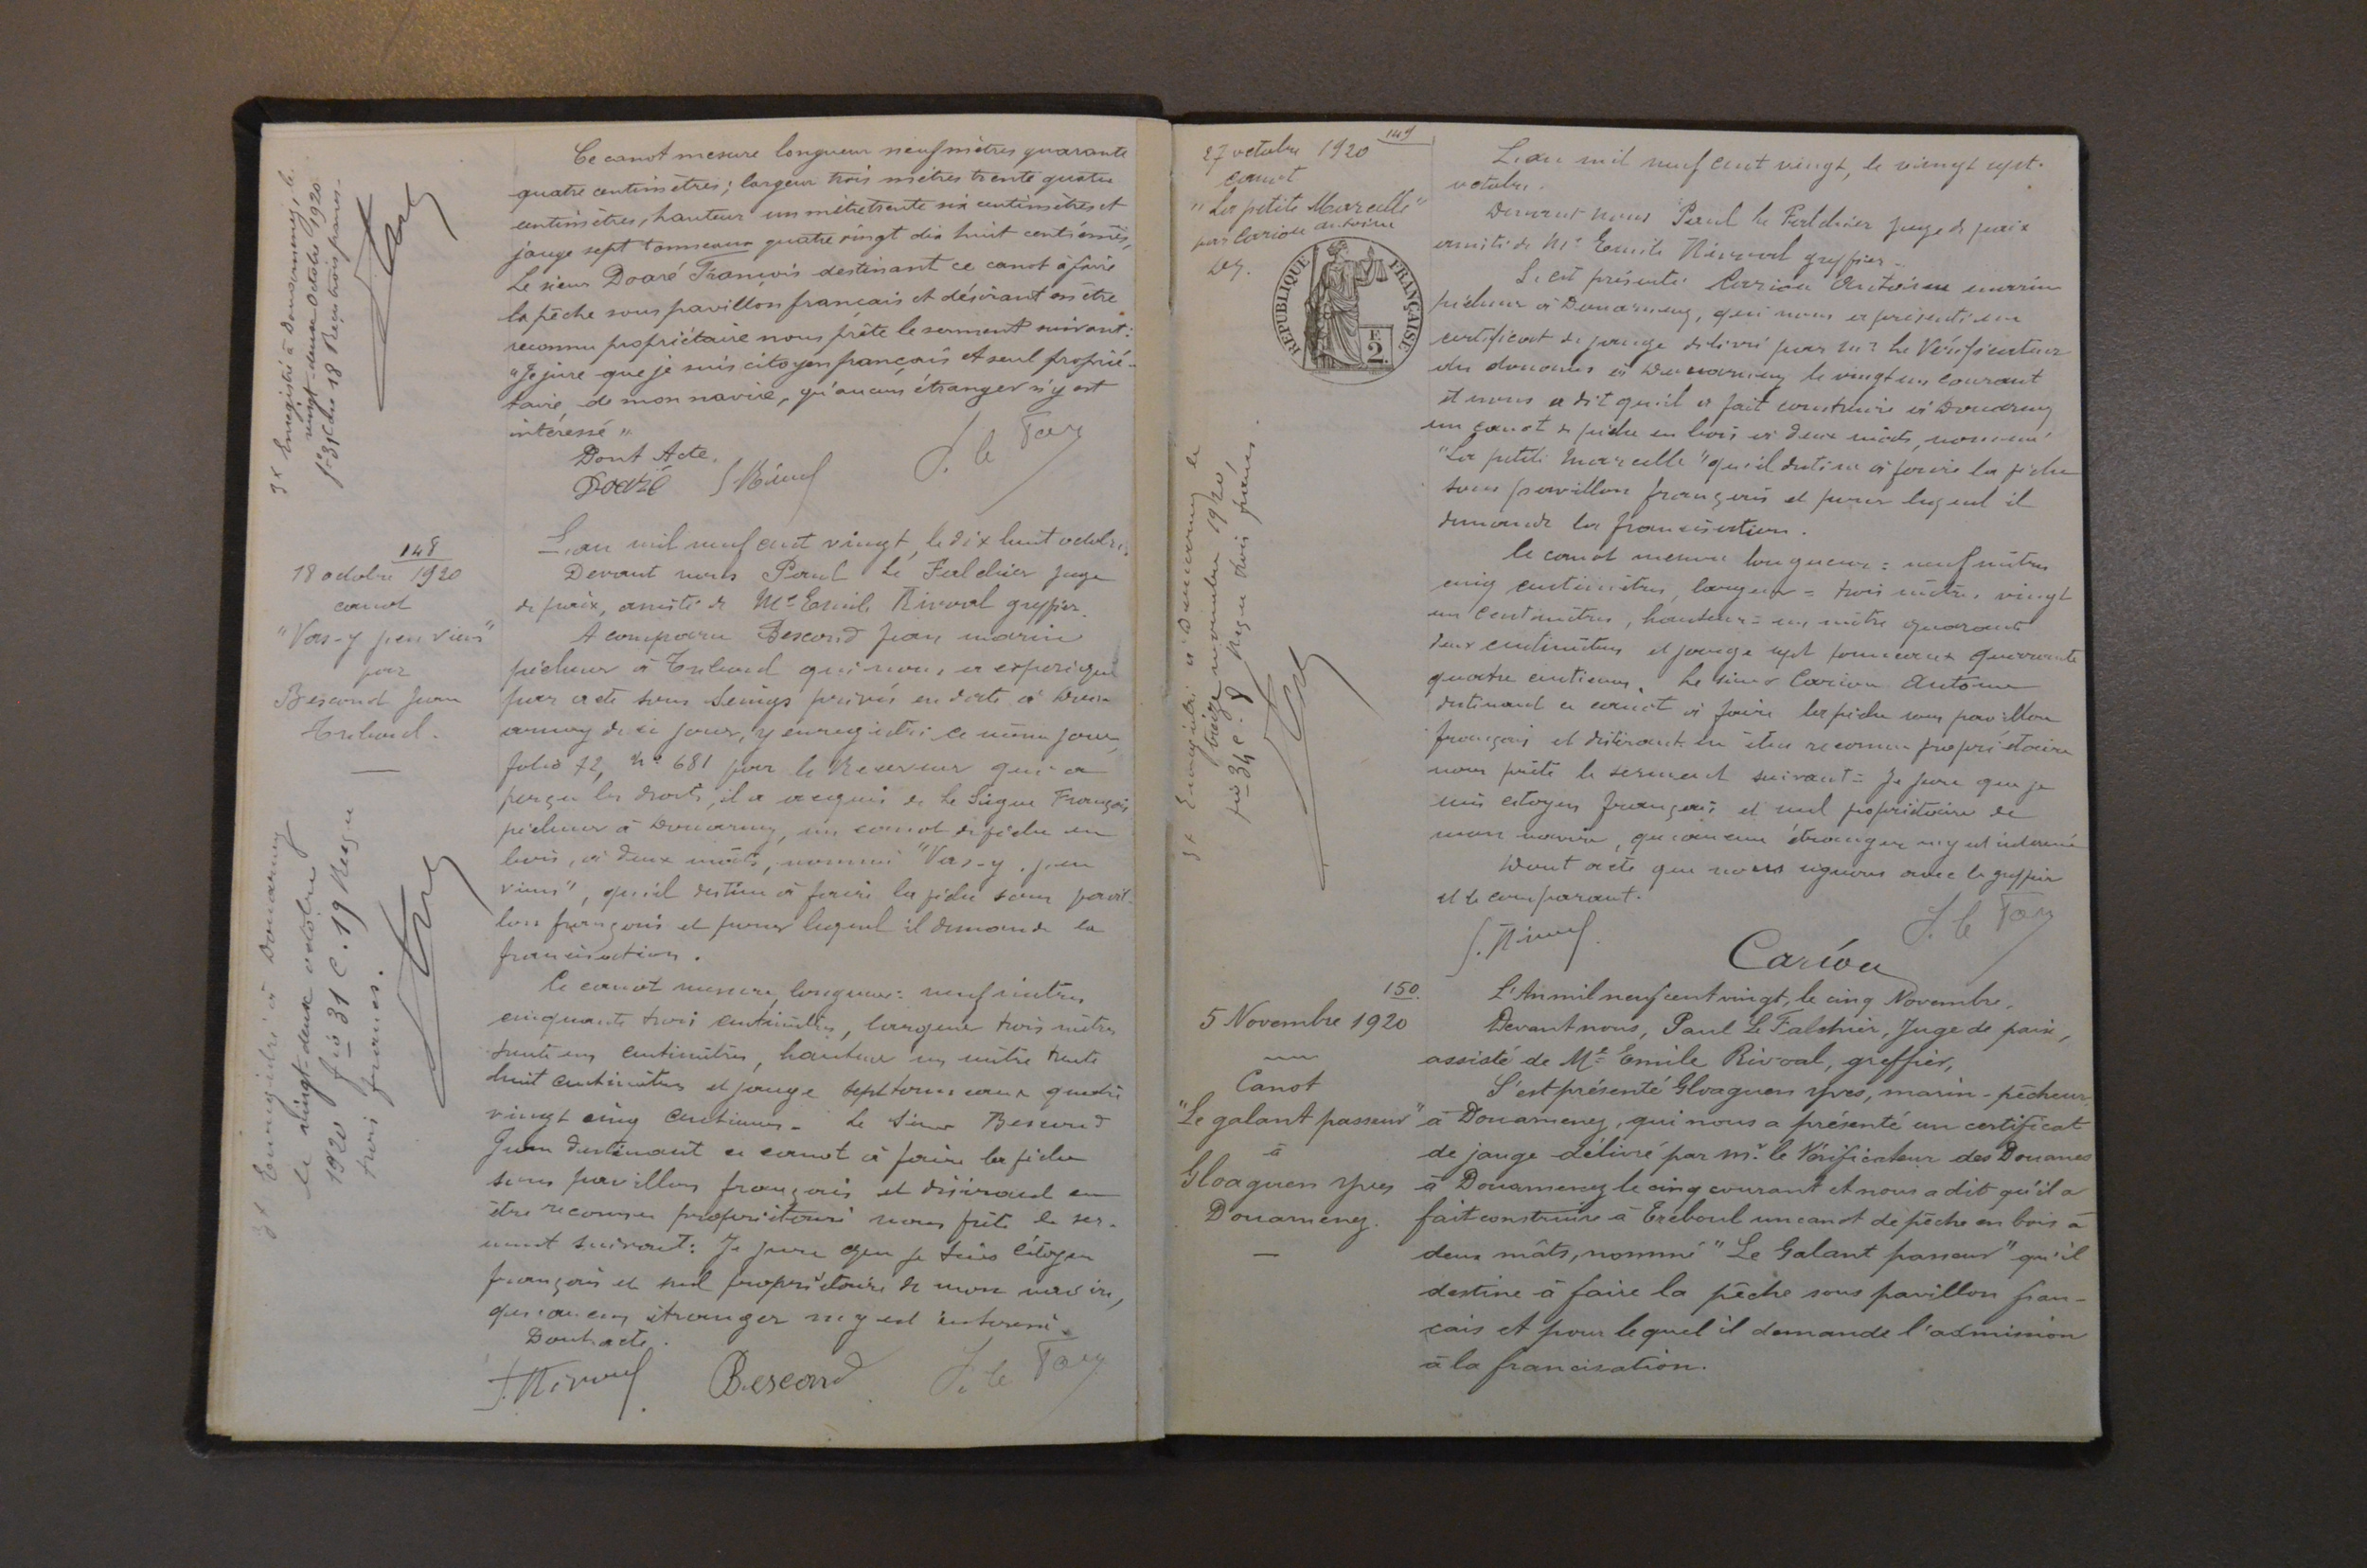 Ce canot mesure longueur neuf mètres quarante
quatre centimètres; largeur trois mètres trente quatre
centimètres, hauteur un mètre trente six centimètres et
jauge sept tonneaux quatre vingt dix huit centièmes,
Le sieur Doaré François destinant ce canot à faire
la pêche sous pavillon français et désirant en être
reconnu propriétaire nous prête le serment suivant:
"Je jure que je suis citoyen français et seul proprié-
taire, de mon navire, qu'aucun étranger n'y est
intéressé"
Dont Acte.
Doaré
3x Enregistré à Douarnenez, le
vingt-deux Octobre 1920
fo 31 Case 18 Reçu trois francs-
148
18 octobre 1920
canot
"Vas-y peu viens"
par
Bescond Jean
Tréboul.
L'an mil neuf cent vingt, le dix huit octobre.
Devant nous Paul Le Falchier Juge
de paix, assisté de Me Emile Rivoal greffier.
A comparu Bescond Jean marin
pêcheur à Tréboul qui nous a exposé que
par acte sous seings privés en date à Douar
nenez de ce jour, y enregistré ce même jour,
folio 72, No 681 par le Receveur qui a
perçu les droits, il a acquis de Le Sigue François
pêcheur à Douarnenez, un canot de pêche en
bois, à deux mâts, nommé "Vas-y peu
viens", qu'il destine à faire la pêche sous pavil
lon français et pour lequel il demande la
francisation.
Ce canot mesure longueur: neuf mètres
cinquante trois centimètres, largeur trois mètres
trente un centimètres, hauteur un mètre trente
huit centimètres et jauge sept tonneaux quatre
vingt cinq centièmes. Le sieur Bescond
Jean destinant ce canot à faire la pêche
sous pavillon français et désirant en
être reconnu propriétaire nous prête le ser-
ment suivant: Je jure que je suis citoyen
français et seul propriétaire de mon navire,
qu'aucun étranger n'y est intéressé.
Dont acte.
Bescond
3x Enregistré à Douarnenez
le vingt-deux octobre
1920 fo 31 C. 19 Reçu
trois francs.
149
27 octobre 1920
canot
"La petite Marcelle"
par Cariou Antoine
Dez.
REPUBLIQUE FRANÇAISE
F.
2
L'an mil neuf cent vingt, le vingt sept.
octobre.
Devant nous Paul le Falchier Juge de paix
assisté de Me Emile Rivoal greffier_
S'est présenté Cariou Antoine marin
pêcheur à Douarnenez, qui nous a présenté un
certificat de jauge délivré par Mr Le Vérificateur
des douanes à Douarnenez le vingt un courant
et nous a dit qu'il a fait construire à Douarnenez
un canot de pêche en bois à deux mâts, nommé
"La petite Marcelle" qu'il destine à faire la pêche
sous pavillon français et pour lequel il
demande la francisation.
Ce canot mesure longueur: neuf mètres
cinq centimètres, largeur = trois mètres vingt
un centimètres, hauteur = un mètre quarante
deux centimètres et jauge sept tonneaux quarante
quatre centièmes. Le sieur Cariou Antoine
destinant ce canot à faire la pêche sous pavillon
français et désirant en être reconnu propriétaire
nous prête le serment suivant = Je jure que je
suis citoyen français et seul propriétaire de
mon navire, qu'aucun étranger n'y est intéressé
Dont acte que nous signons avec le greffier
et le comparant.
Cariou
3x Enregistré à Douarnenez le
treize novembre 1920,
fo 34 C. 8 Reçu trois francs.
150.
5 Novembre 1920
Canot
"Le galant passeur"
à
Gloaguen Yves
Douarnenez.
L'An mil neuf cent vingt, le cinq Novembre,
Devant nous, Paul Le Falchier, Juge de paix,
assisté de Me Emile Rivoal, greffier,
S'est présenté Gloaguen Yves, marin-pêcheur,
à Douarnenez, qui nous a présenté un certificat
de jauge délivré par Mr le Vérificateur des Douanes
à Douarnenez le cinq courant et nous a dit qu'il a
fait construire à Tréboul un canot de pêche en bois à
deux mâts, nommé "Le Galant passeur" qu'il
destine à faire la pêche sous pavillon fran-
çais et pour lequel il demande l'admission
à la francisation.